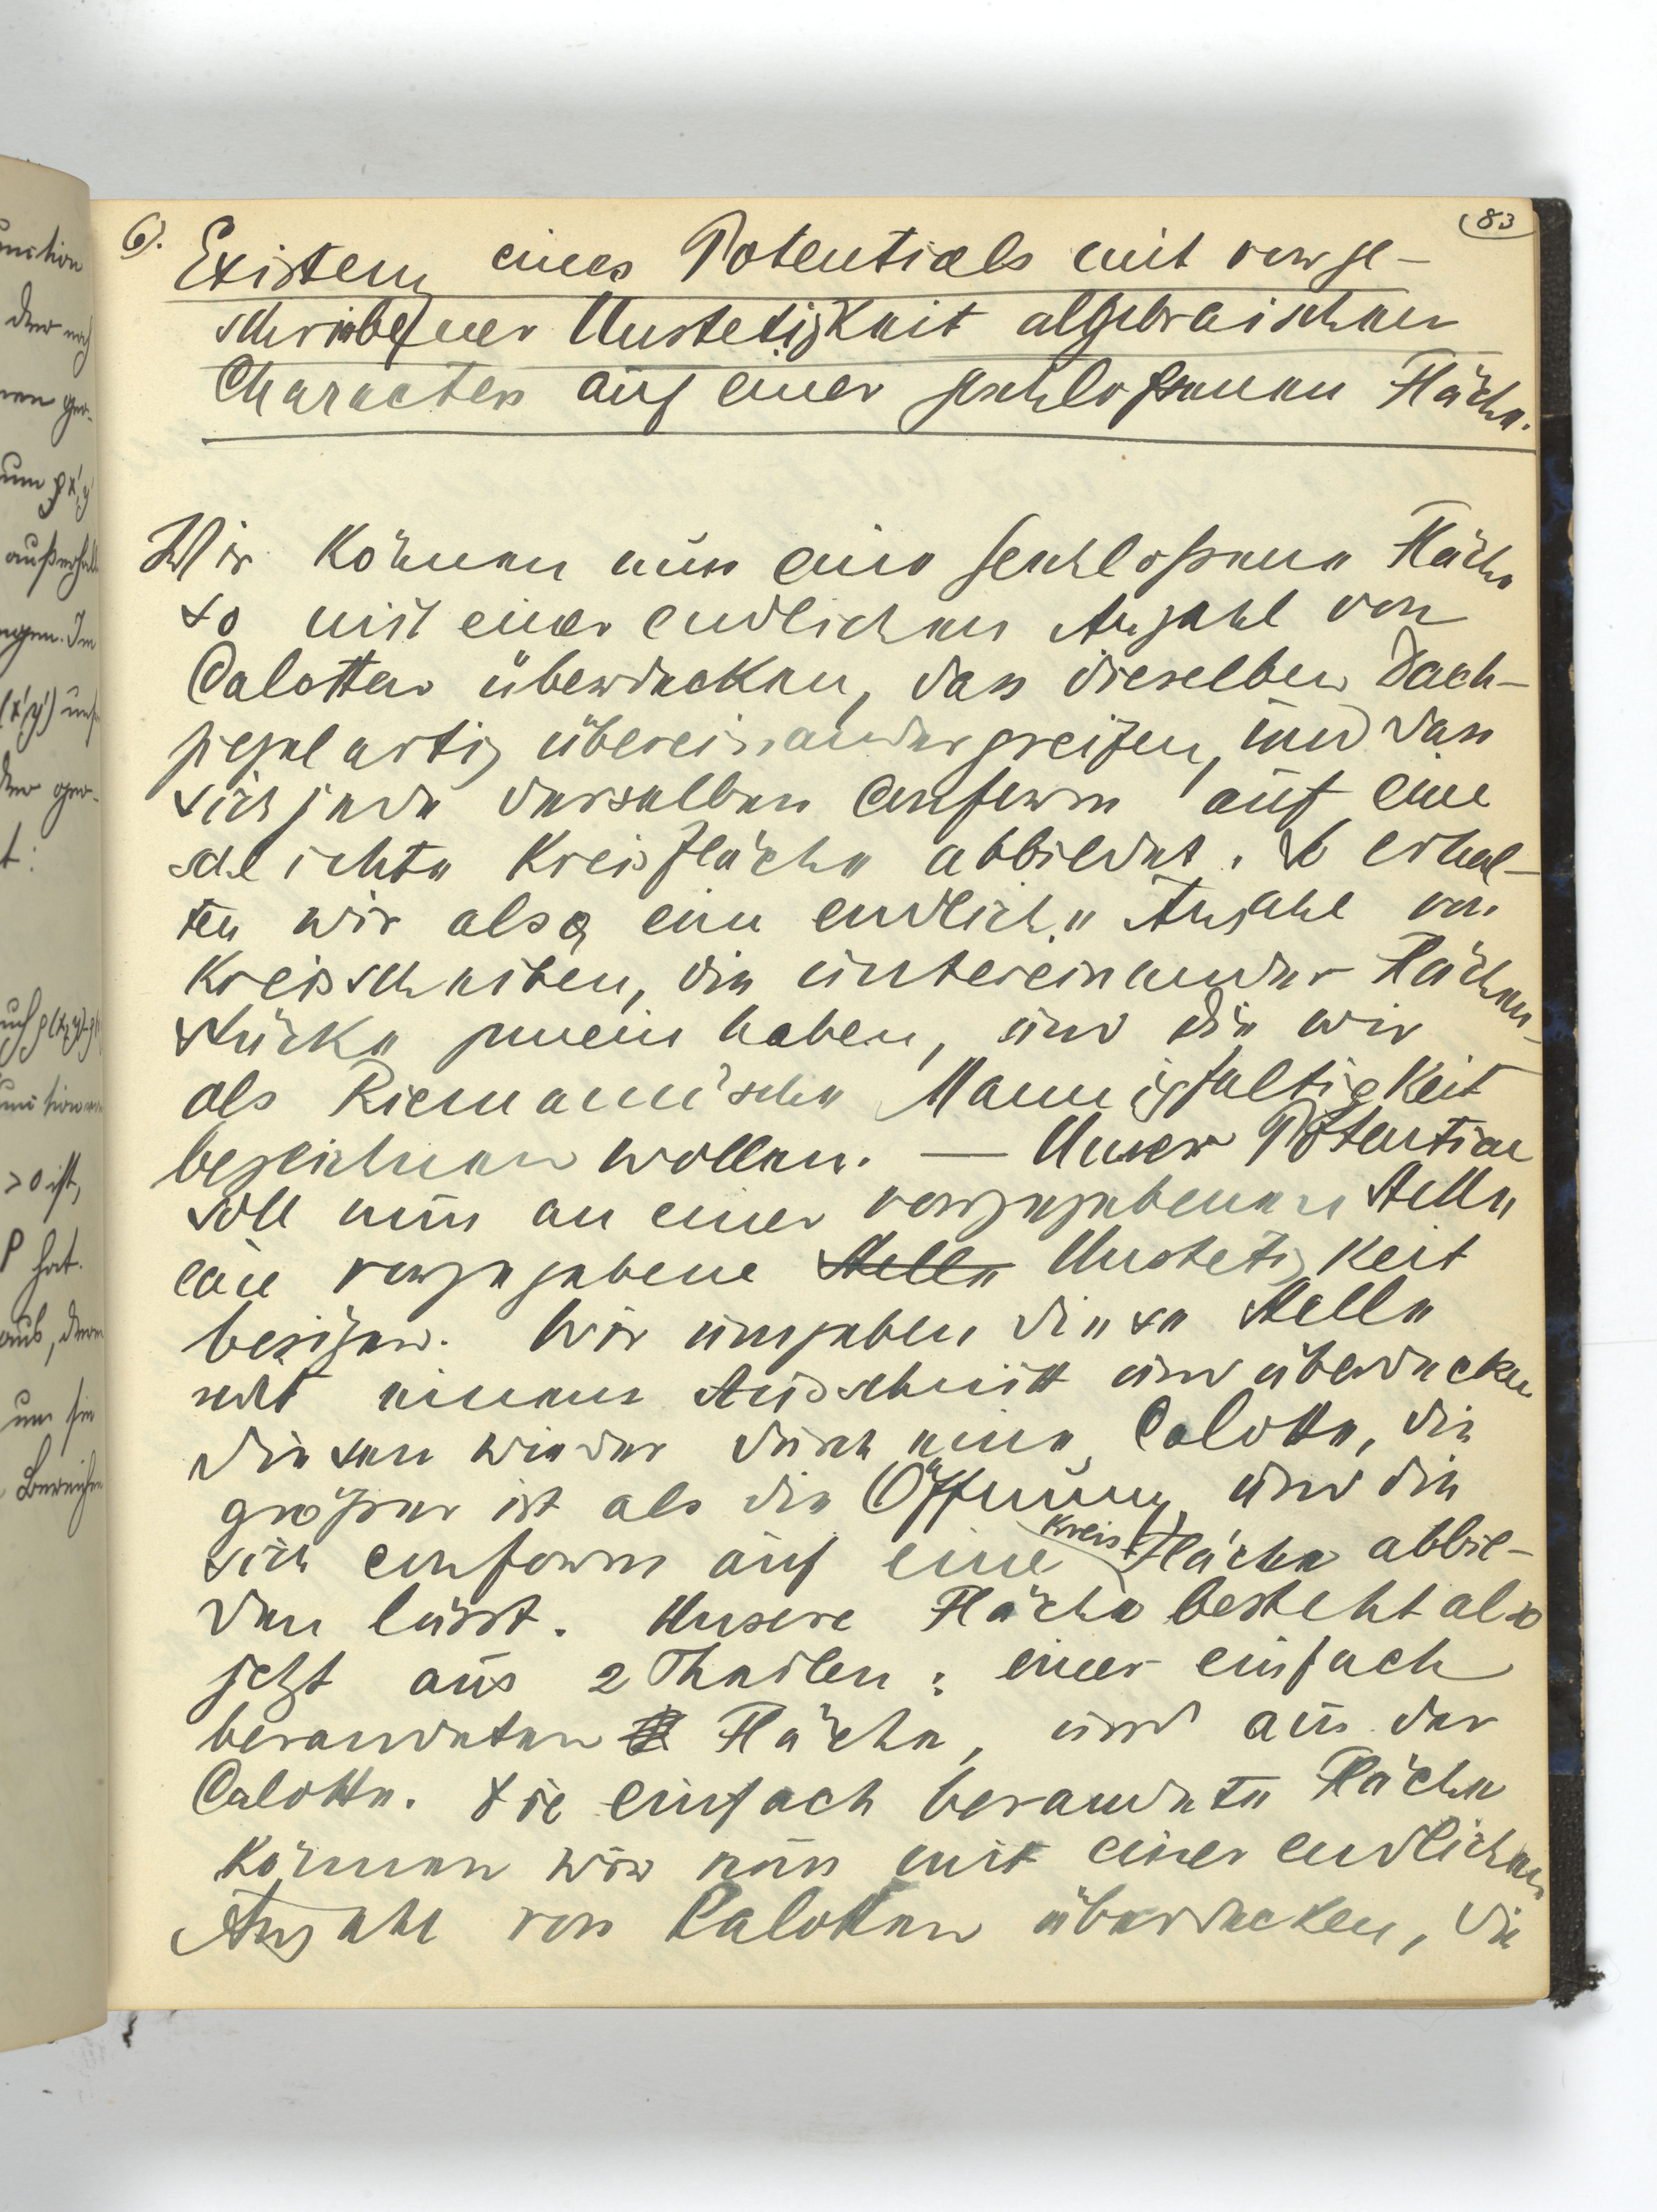 83
6). Existenz eines Potentials mit vorge-
schriebener Unstetigkeit algebraischen
Characters auf einer geschloßenen Fläche.
Wir können nun eine geschloßene Fläche
so mit einer endlichen Anzahl von
Calotten überdecken, dass dieselben dach-
ziegelartig übereinandergreifen, und dass
sich jede derselben conform auf eine
schlichte Kreisfläche abbildet. So erhal-
ten wir also eine endliche Anzahl von
Kreisscheiben, die untereinander Flächen-
stücke gemein haben, und die wir
als Riemann'sche Mannigfaltigkeit
bezeichnen wollen. — Unser Potential
soll nun an einer vorgegebenen Stelle
eine vorgegebene Stelle Unstetigkeit
besitzen. Wir umgeben diese Stelle
mit einem Ausschnitt und überdecken
diesen wieder durch eine Calotte, die
größer ist als die Öffnung und die
sich conform auf eine Kreisfläche abbil-
den lässt. Unsere Fläche besteht also
jetzt aus 2 Theilen: einer einfach
berandeten Fläche, und aus der
Calotte. Die einfach berandete Fläche
können wir nun mit einer endlichen
Anzahl von Calotten überdecken, die
unction
der noch
außerhalb
(x',y')
>0 ist,
P hat.
um sie